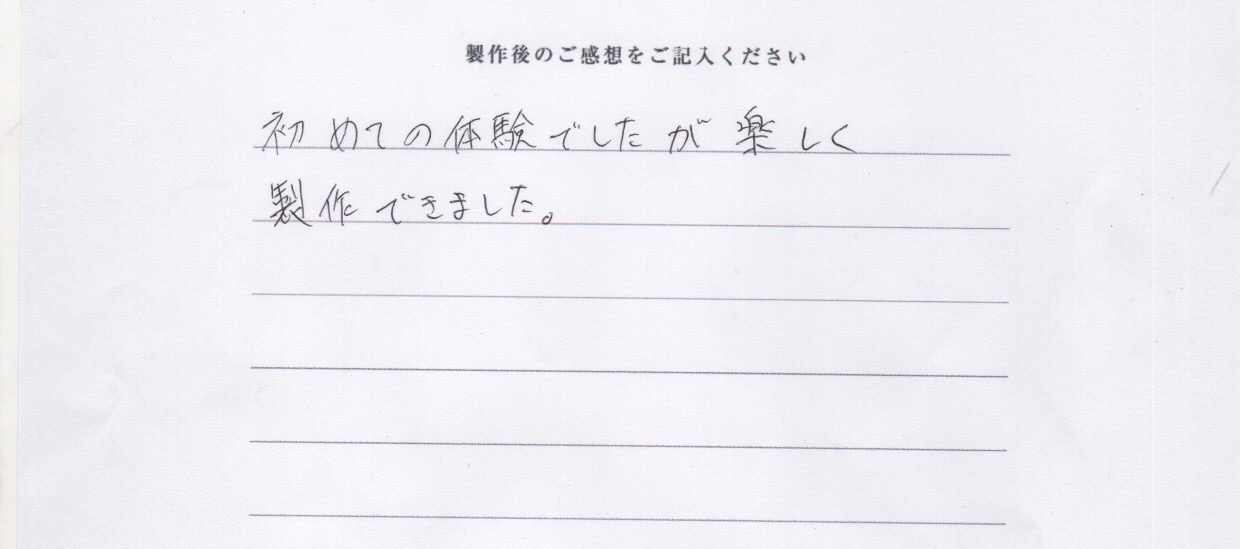 製作後のご感想をご記入ください
初めての体験でしたが楽しく
製作できました。